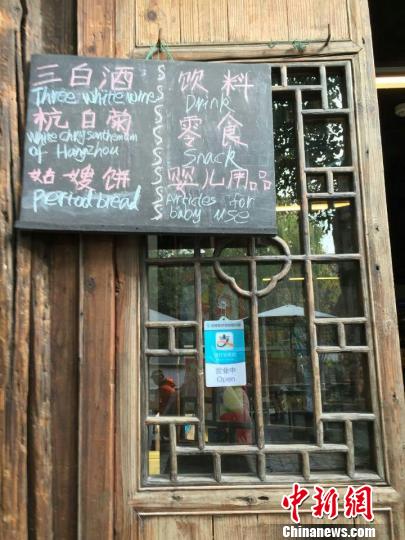 三白酒
Three white wine
杭白菊
White Chrysanthemum
of Hangzhou
姑嫂饼
Period bread
饮料
Drink
零食
snack
婴儿用品
Articles for
baby use
支
营业中
Open
中新网
Chinanews.com